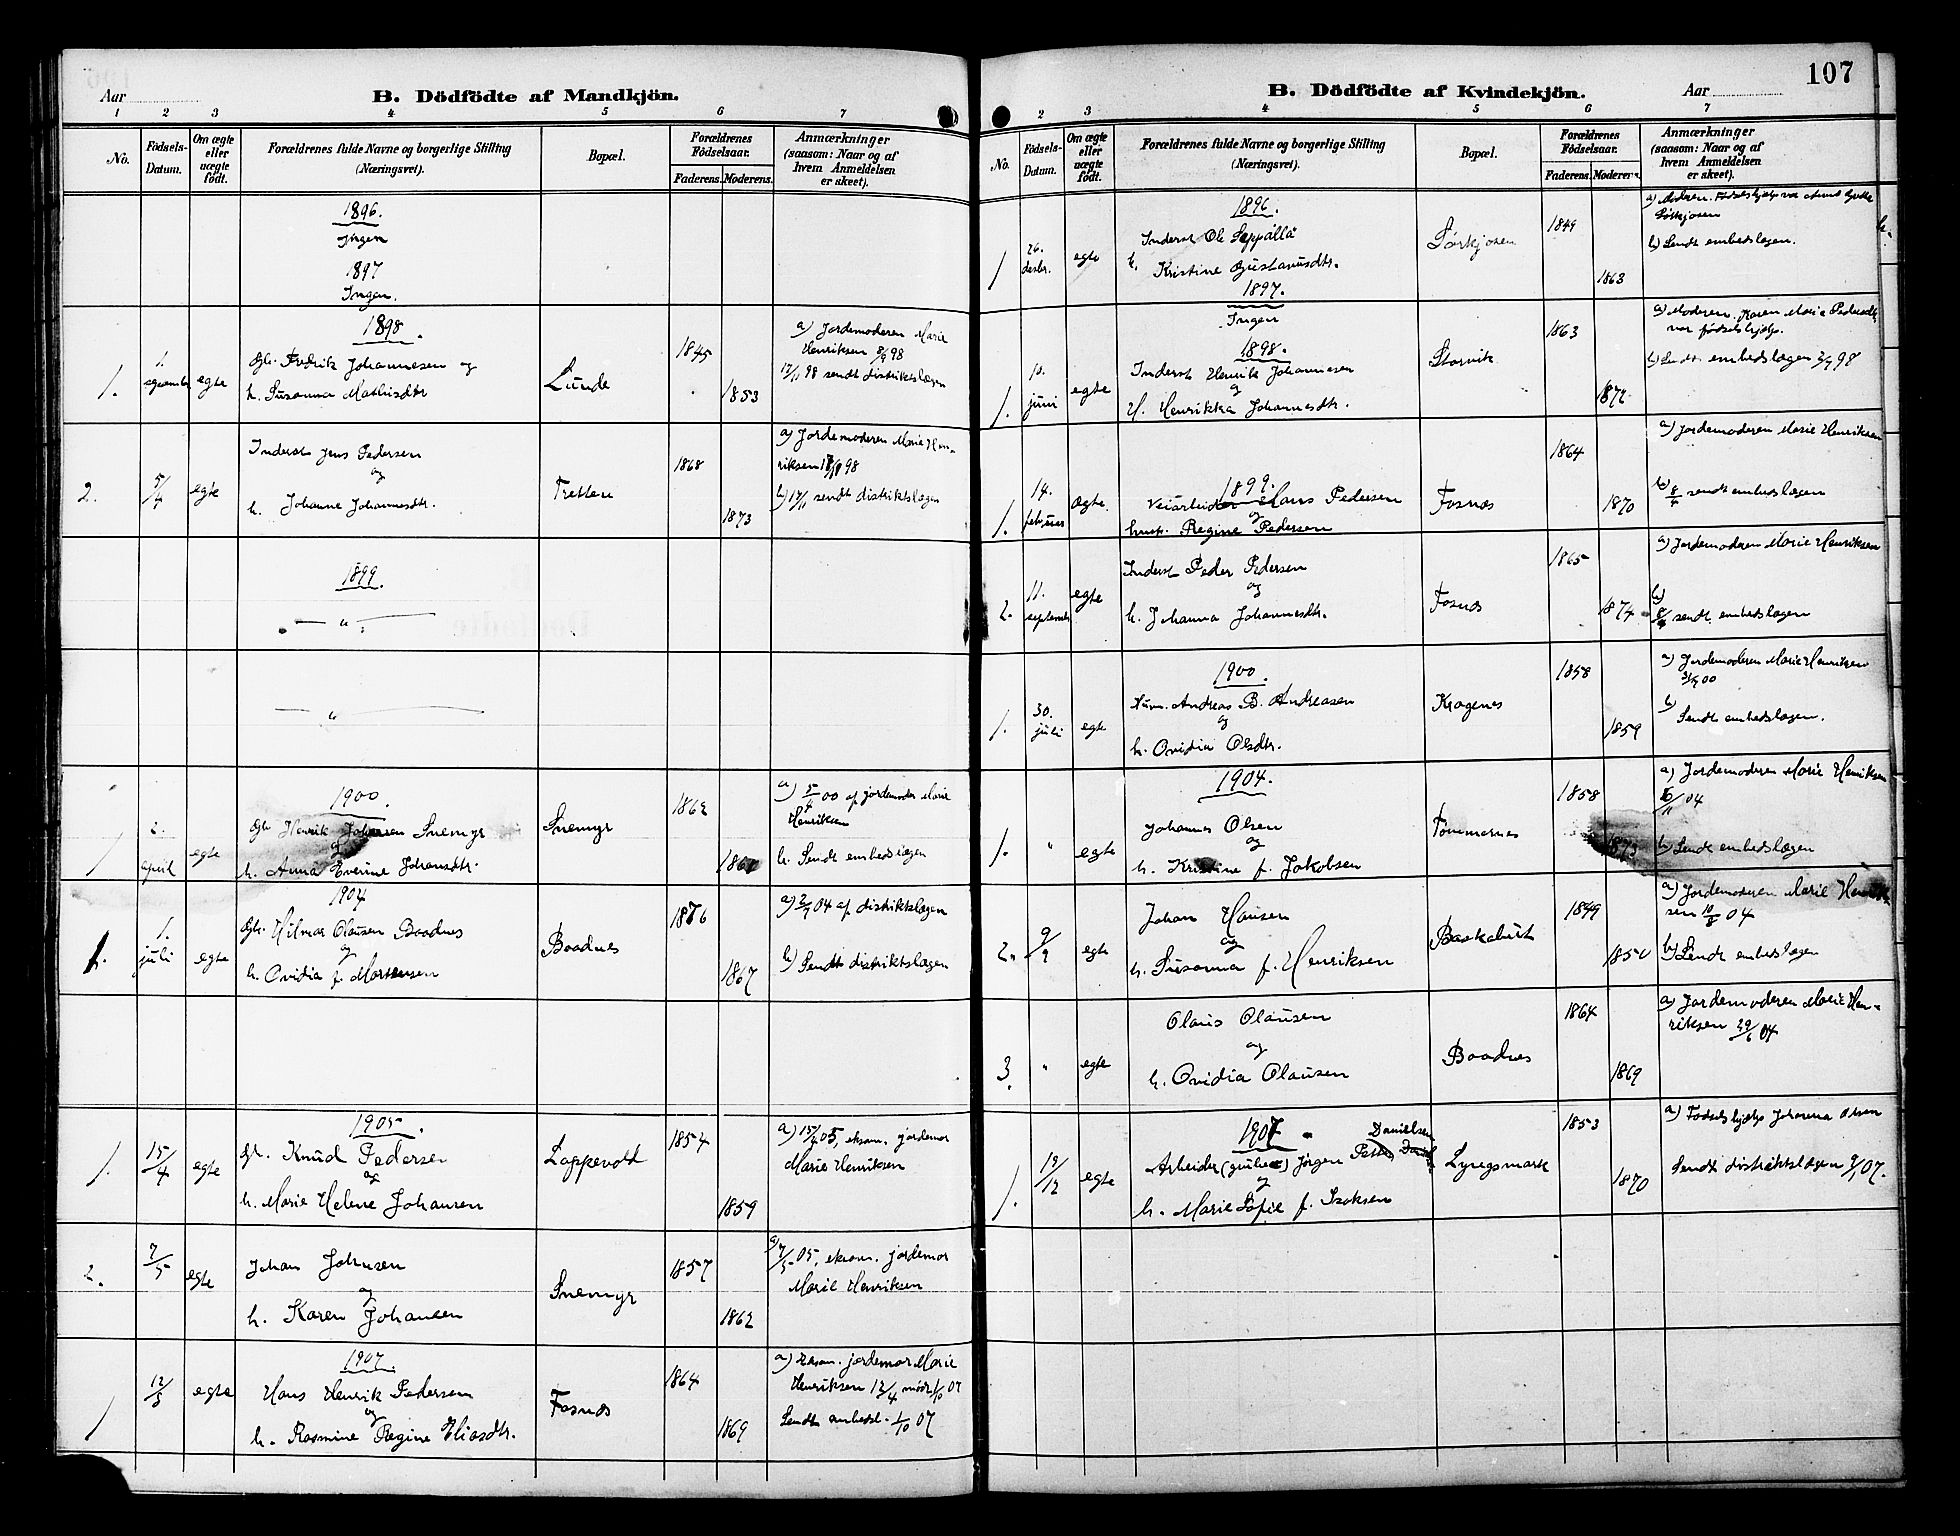 Aar
B. Dödfödte af Mandkjön.
1 2 3 4 5 6 7
No. Födsels-Datum. Om ægte eller uægte födt. Forældrenes fulde Navne og borgerlige Stilling (Næringsvei). Bopæl. Forældrenes Fødselsaar. Faderens. Moderens. Anmærkninger (saasom: Naar og af hvem Anmeldelsen er skeet).
1896.
Ingen
1897
Ingen.
1898.
1. 1. egte
Gbr. Fredrik Johannesen og
h. Susanna Mathisdtr
Lunde
1845
1853
a) Jordemoderen Marie
Henriksen 98
98 sendt distriktslægen
2. egte
Inderst Jens Pedersen
og
h. Johanne Johannesdtr.
Tretten
1868
1873
a) Jordemoderen Marie Hen-
riksen 98
b) sendt distriktslægen
1899.
— " —
— " —
1900
1 2. april egte
Gbr Henrik Johansen Snemyr
og
h. Anna Everine Johansdtr.
Snemyr
1862
a) 00 af jordemoder Marie
Henriksen
b. Sendt embedslægen
1904
1. 1. juli egte
Gbr. Hilmar Olausen Baadnes
og
h. Ovidia f. Mortensen
Baadnes
1876
1867
a) 04 af distriktslægen
b) Sendt distriktslægen
1905.
1. 15/4 egte
Gbr. Knud Pedersen
og
h. Marie Helene Johansen
Lappevold
1854
1859
a) 05, eksam. jordemor
Marie Henriksen
2. 7/5 egte
Johan Johnsen
og
h. Karen Johansen
Snemyr
1857
1862
a) 7/5 05, eksam. jordemor
Marie Henriksen
1907.
1 egte
Hans Henrik Pedersen
og
h. Rasmine Regine Eliasdtr.
Fosnæs
1864
1869
a) Eksam. jordemor Marie
Henriksen 07
Sendt embedsl. 1/10 07
107
B. Dödfödte af Kvindekjön.
Aar
2 3 4 5 6 7
No. Födsels-Datum. Om ægte eller uægte födt. Forældrenes fulde Navne og borgerlige Stilling (Næringsvei). Bopæl. Forældrenes Fødselsaar. Faderens. Moderens. Anmærkninger (saasom: Naar og af hvem Anmeldelsen er skeet).
1896.
1 26. desbr. egte
Inderst Ole Seppälä
h. Kristine Gustavusdtr.
Sørkjosen
1849
1863
a) Moderen. Fødselshjælp var
Sørkjosen
b) Sendt embedslægen.
1897.
Ingen
1898.
1. juni egte
Inderst Henrik Johannesen
og
H. Henrikka Johannesdtr.
Storvik
1863
a) Moderen. Karen Marie Pedersdtr
var fødselshjælp.
b) Sendt embedslægen 98
1899.
1. 14. februar ægte.
Veiarbeider Hans Pedersen
og
hust. Regine Pedersen
Fosnæs
1864
1870
a) Jordemoderen Marie Henriksen
b) sendt embedslægen
2. 11. september egte
Inderst Peder Pedersen
og
h. Johanna Johannesdtr.
Fosnæs
1865
1874
a) Jordemoderen Marie Henriksen
b) sendt embedslægen
1900.
1. 30. juli egte
Andreas B. Andreasen
og
h. Ovidia Olsdtr.
Kragenes
1858
1859
a) Jordemoderen Marie Henriksen
00
b) Sendt embedslægen.
1904.
1. " egte
Johannes Olsen
og
h. Kristine f. Jakobsen
Tømmernes
1858
1873
a) Jordemoderen Marie Henriksen
04
b) Sendt embedslægen
2. egte
Johan Hansen
og
h. Susanna f. Henriksen
Baskabut
1849
1850
a) Jordemoderen Marie Henrik-
sen 04
b) Sendt embedslægen
3. " egte
Olaus Olausen
og
h. Ovidia Olausen
Baadnes
1864
1869
a) Jordemoderen Marie Hen-
riksen 29/6 04
1907
1. 19/12 egte
Danielsen
Arbeider (grube) Jörgen
og
h. Marie Sofie f. Isaksen
Lyngsmark
1853
1870
a) Fødselshjælp Johanna Olsen
Sendt distriktslægen 07.